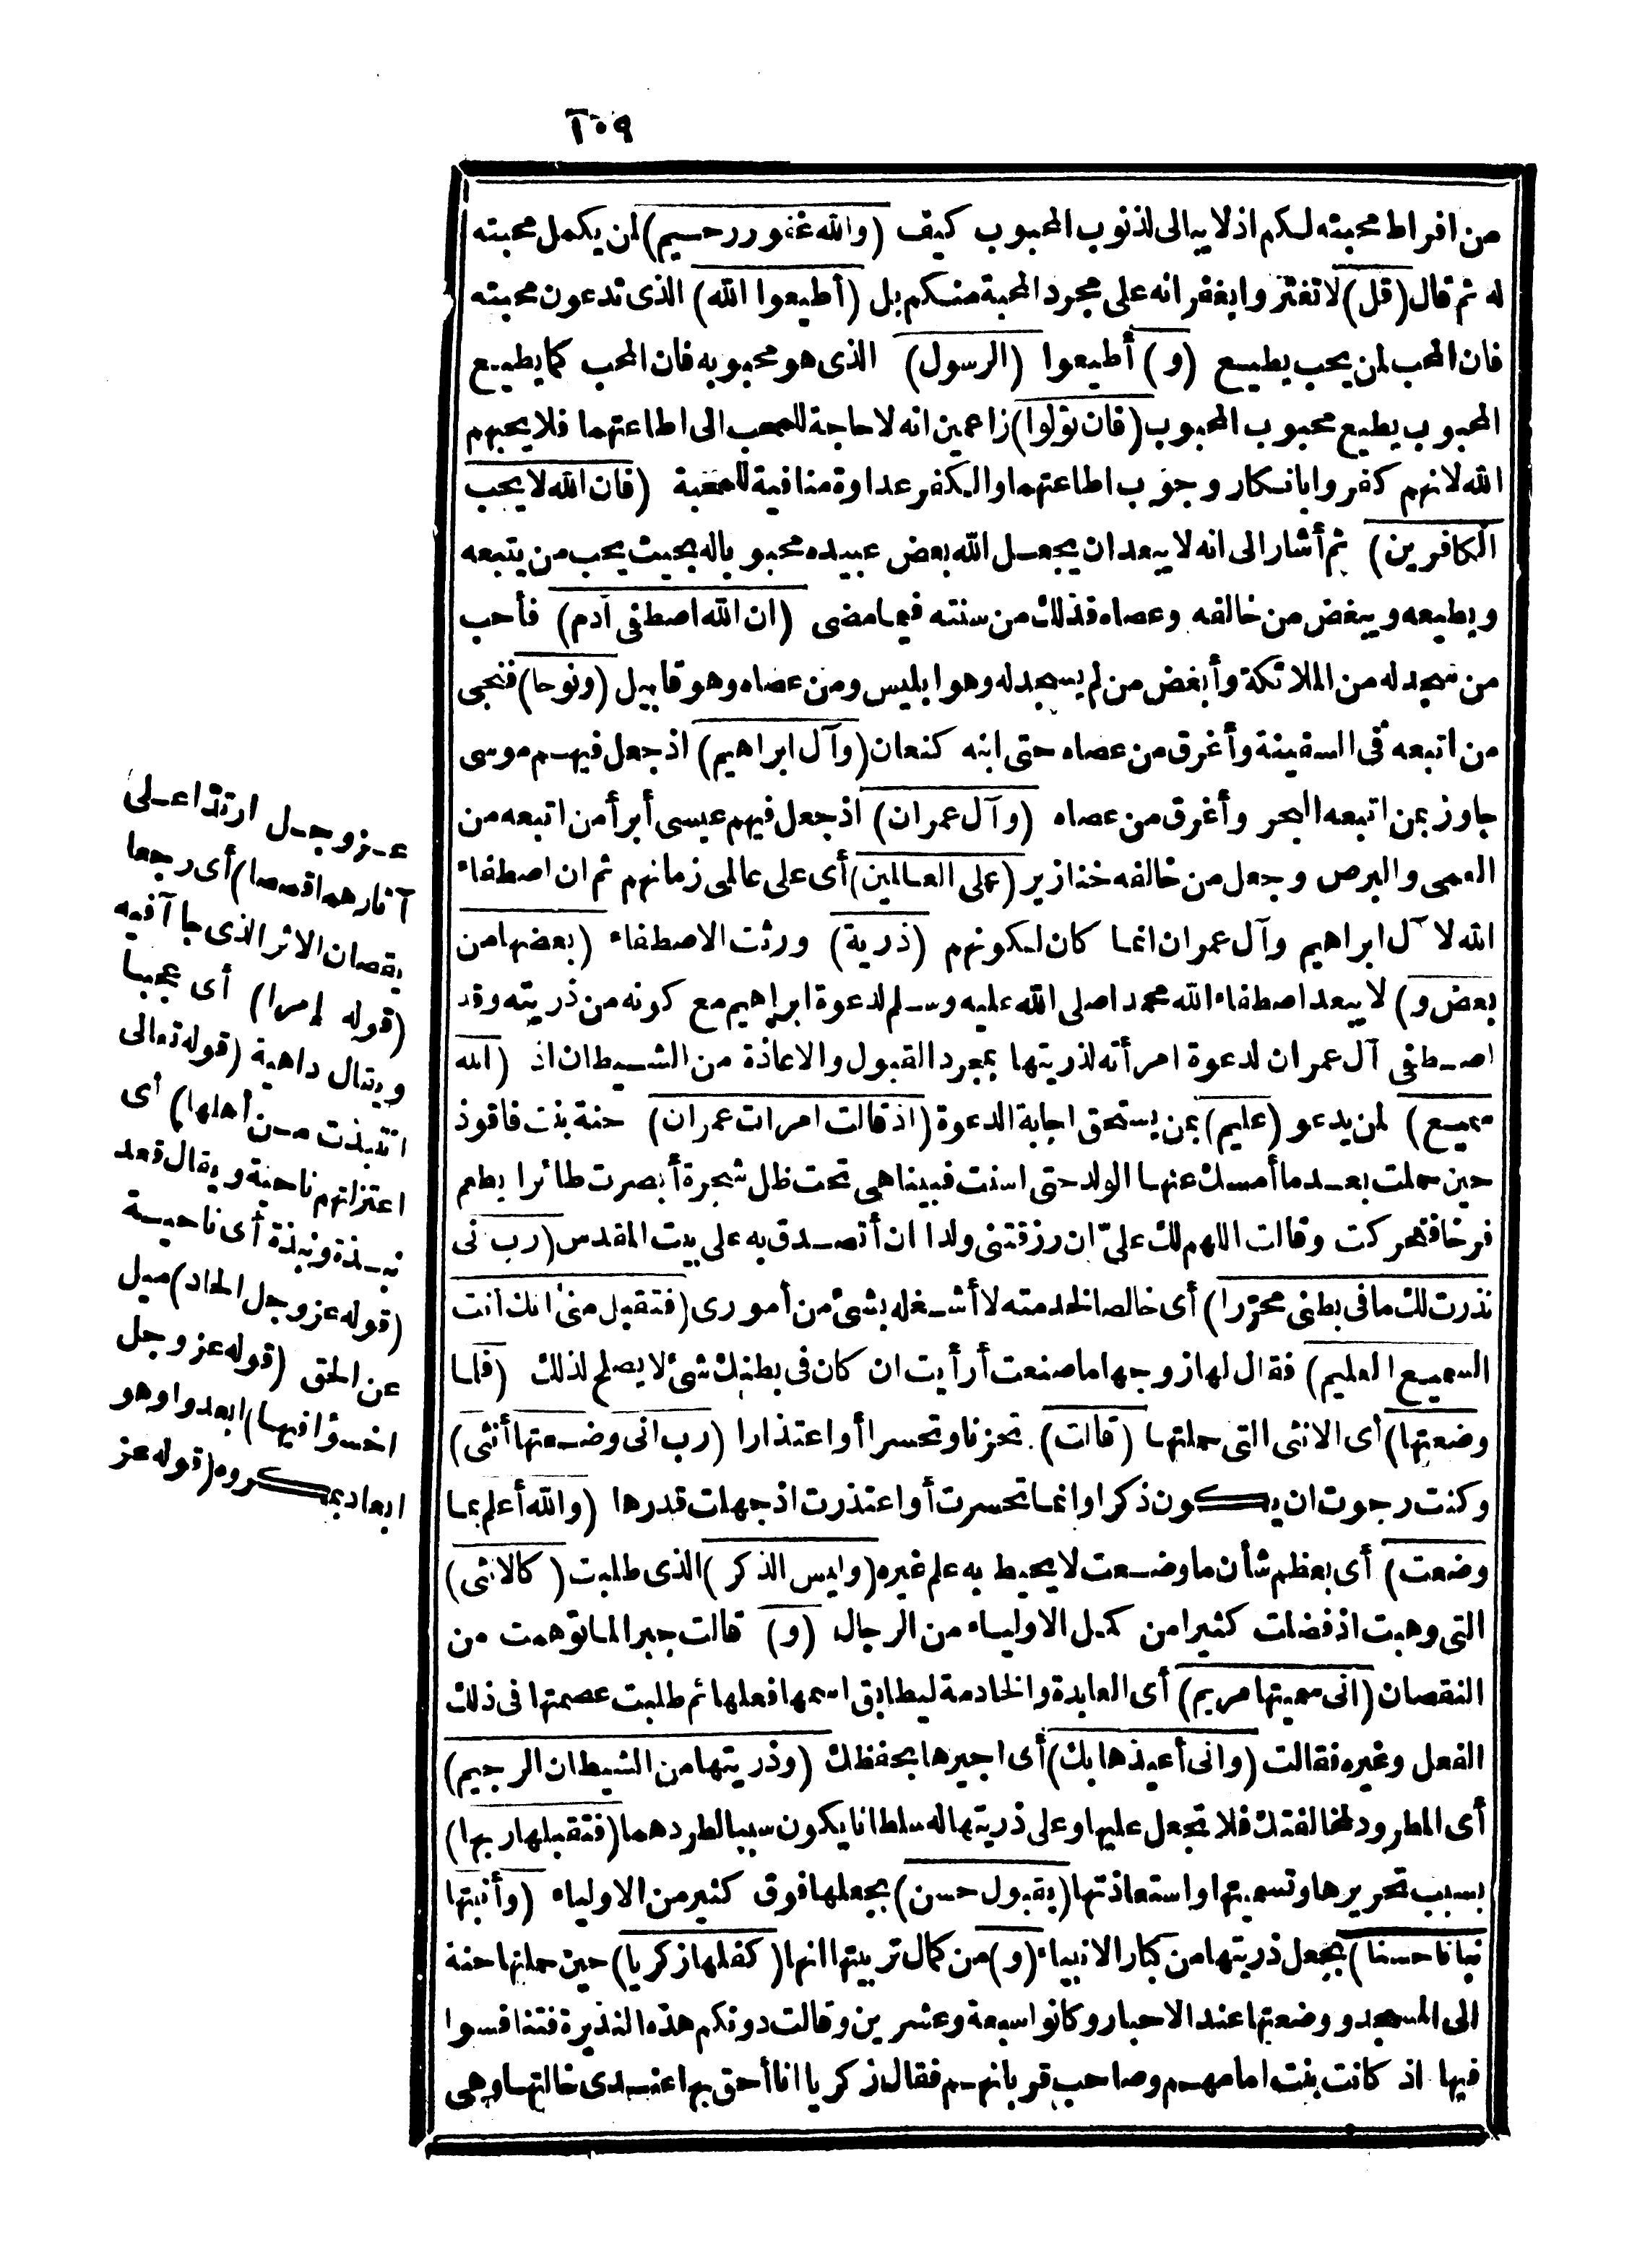 ١٠٩
من افراط محبته لكم اذ لا يبالى لذنوب المحبوب كيف (والله غفور رحيم) لمن يكمل محبته
له ثم قال (قل) لا تغتروا بغفرانه على مجرد المحبة منكم بل (أطيعوا الله) الذى تدعون محبته
فان المحب لمن يحب يطيع (و) أطيعوا (الرسول) الذى هو محبوبه فان المحب كما يطيع
المحبوب يطيع محبوب المحبوب (فان تولوا) زاعمين انه لا حاجة للمحب الى اطاعتهما فلا يحبهم
الله لانهم كفروا بانكار وجوب اطاعتهما والكفر عداوة منافية للمحبة (فان الله لا يحب
الكافرين) ثم أشار الى انه لا يبعد ان يجعل الله بعض عبيده محبوبا له بحيث يحب من يتبعه
ويطيعه ويبغض من خالفه وعصاه فذلك من سنته فيما مضى (ان الله اصطفى آدم) فأحب
من سجد له من الملائكة وأبغض من لم يسجد له وهو ابليس ومن عصاه وهو قابيل (ونوحا) فنجى
من اتبعه فى السفينة وأغرق من عصاه حتى ابنه كنعان (وآل ابراهيم) اذ جعل فيهم موسى
جاوز بمن اتبعه البحر وأغرق من عصاه (وآل عمران) اذ جعل فيهم عيسى أبرأ من اتبعه من
العمى والبرص وجعل من خالفه خنازير (على العالمين) أى على عالمى زمانهم ثم ان اصطفاء
الله لآل ابراهيم وآل عمران انما كان لكونهم (ذرية) ورثت الاصطفاء (بعضها من
بعض و) لا يبعد اصطفاء الله محمدا صلى الله عليه وسلم لدعوة ابراهيم مع كونه من ذريته وقد
اصطفى آل عمران لدعوة امرأته لذريتها بمجرد القبول والاعاذة من الشيطان اذ (الله
سميع) لمن يدعو (عليم) بمن يستحق اجابة الدعوة (اذ قالت امرات عمران) حنة بنت فاقوذ
حين حملت بعد ما أمسك عنها الولد حتى اسنت فبينا هى تحت ظل شجرة أبصرت طائرا يطعم
فرخا فتحركت وقالت اللهم لك علىّ ان رزقتنى ولدا ان أتصدق به على بيت المقدس (رب انى
نذرت لك ما فى بطنى محرّرا) أى خالصا لخدمته لا أشغله بشئ من أمورى (فتقبل منى انك أنت
السميع العليم) فقال لها زوجها ما صنعت أرأيت ان كان فى بطنك شئ لا يصلح لذلك (فلما
وضعتها) أى الانثى التى حملتها (قالت) تحزنا وتحسرا أو اعتذارا (رب انى وضعتها أنثى)
وكنت رجوت ان يكون ذكرا وانما تحسرت أو اعتذرت اذ جهلت قدرها (والله أعلم بما
وضعت) أى بعظم شأن ما وضعت لا يحيط به علم غيره (وليس الذكر) الذى طلبت (كالانثى)
التى وهبت اذ فضلت كثيرا من كمل الاولياء من الرجال (و) قالت جبرا لما توهمت من
النقصان (انى سميتها مريم) أى العابدة والخادمة ليطابق اسمها فعلها ثم طلبت عصمتها فى ذلك
الفعل وغيره فقالت (وانى أعيذها بك) أى اجيرها بحفظك (وذريتها من الشيطان الرجيم)
أى المطرود لمخالفتك فلا تجعل عليها وعلى ذريتها له سلطانا يكون سببا لطردهما (فتقبلها ربها)
بسبب تحريرها وتسميتها واستعاذتها (بقبول حسن) بجعلها فوق كثير من الاولياء (وأنبتها
نباتا حسنا) بجعل ذريتها من كبار الانبياء (و) من كمال تربيتها انها (كفلها زكريا) حين حملتها حنة
الى المسجد ووضعتها عند الاحبار وكانوا سبعة وعشرين وقالت دونكم هذه النذيرة فتنافسوا
فيها اذ كانت بنت امامهم وصاحب قربانهم فقال زكريا انا أحق بها عندى خالتها وهى
عز وجل ارتدّا على
آثارهما قصصا) أى رجعا
يقصان الاثر الذى جا آ فيه
(قوله إمرا) أى عجبا
ويقال داهية (قوله تعالى
انتبذت من أهلها) أى
اعتزلتهم ناحية ويقال قعد
نبذة ونبذة أى ناحية
(قوله عز وجل الحاد) ميل
عن الحق (قوله عز وجل
اخسؤا فيها) ابعدوا وهو
ابعاد بمكروه (قوله عز